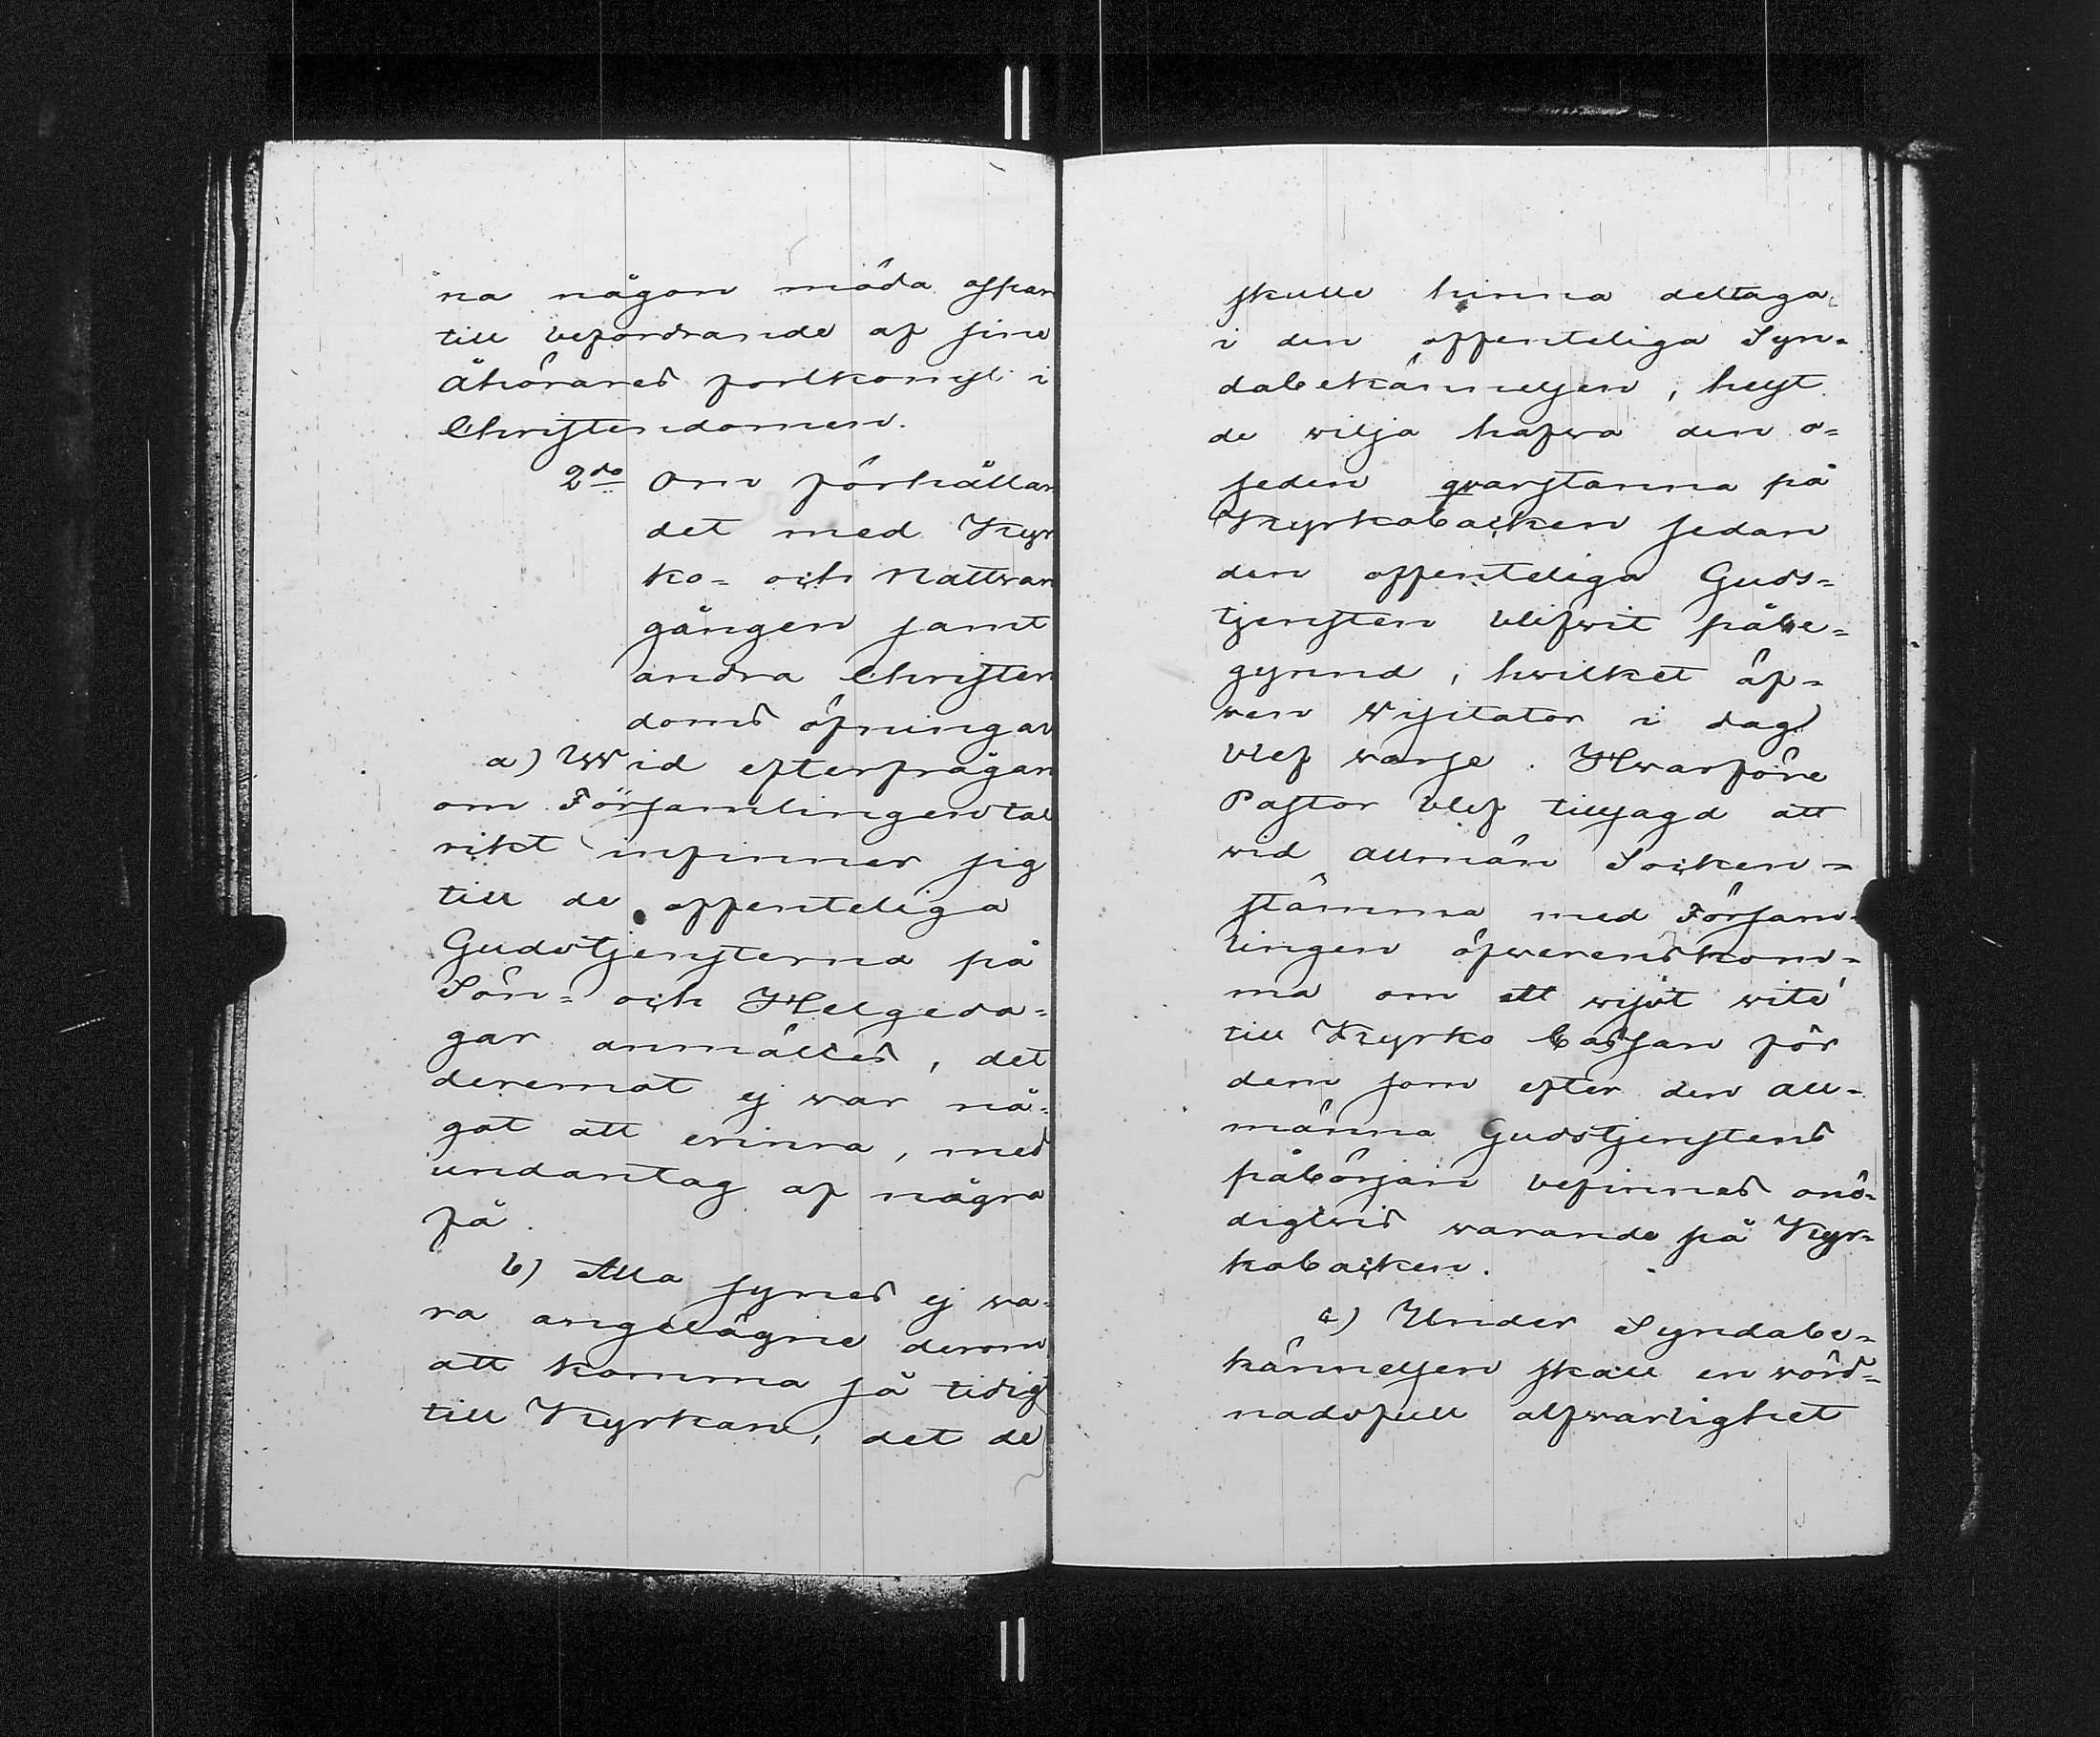 na någon möda ospar
till befordrande af sine
Åhörares forlkomst i
Christendomen.
2do Om förhållan
det med Kyr
ko- och Nattvar
gången samt
andra Christen
doms öfningar
a) Wid efterfrågan
om Församlingen tal
rikt infinner sig
till de offenteliga
Gudstjensterna på
Sön- och Helgeda-
gar anmältes, det
deremot ej war nå-
got att erinra, med
undantag af några
få.
b) Alla synes ej wa-
ra angelägne derom
att komma så tidigt
till Kyrkan, det de
skulle hinna deltaga
i den offenteliga Syn-
dabekännelsen, helst
de wilja hafwa den o-
seden qvarstanna på
Kyrkobacken sedan
den offenteliga Guds-
tjensten blifwit påbe-
gynnd, hwilket äf-
wen Visitator i dag
blef warse. Hwarföre
Pastor blef tillsagd att
wid allmän Socken-
stämma med Försam-
lingen öfwerenskom-
ma om ett wisst wite
till Kyrko Cassan för
dem som efter den all-
männa Gudstjenstens
påbörjan befinnes onö-
digtvis warande på Kyr-
kobacken.
c) Under Syndabe-
kännelsen skall en wörd-
nadsfull alfwarlighet